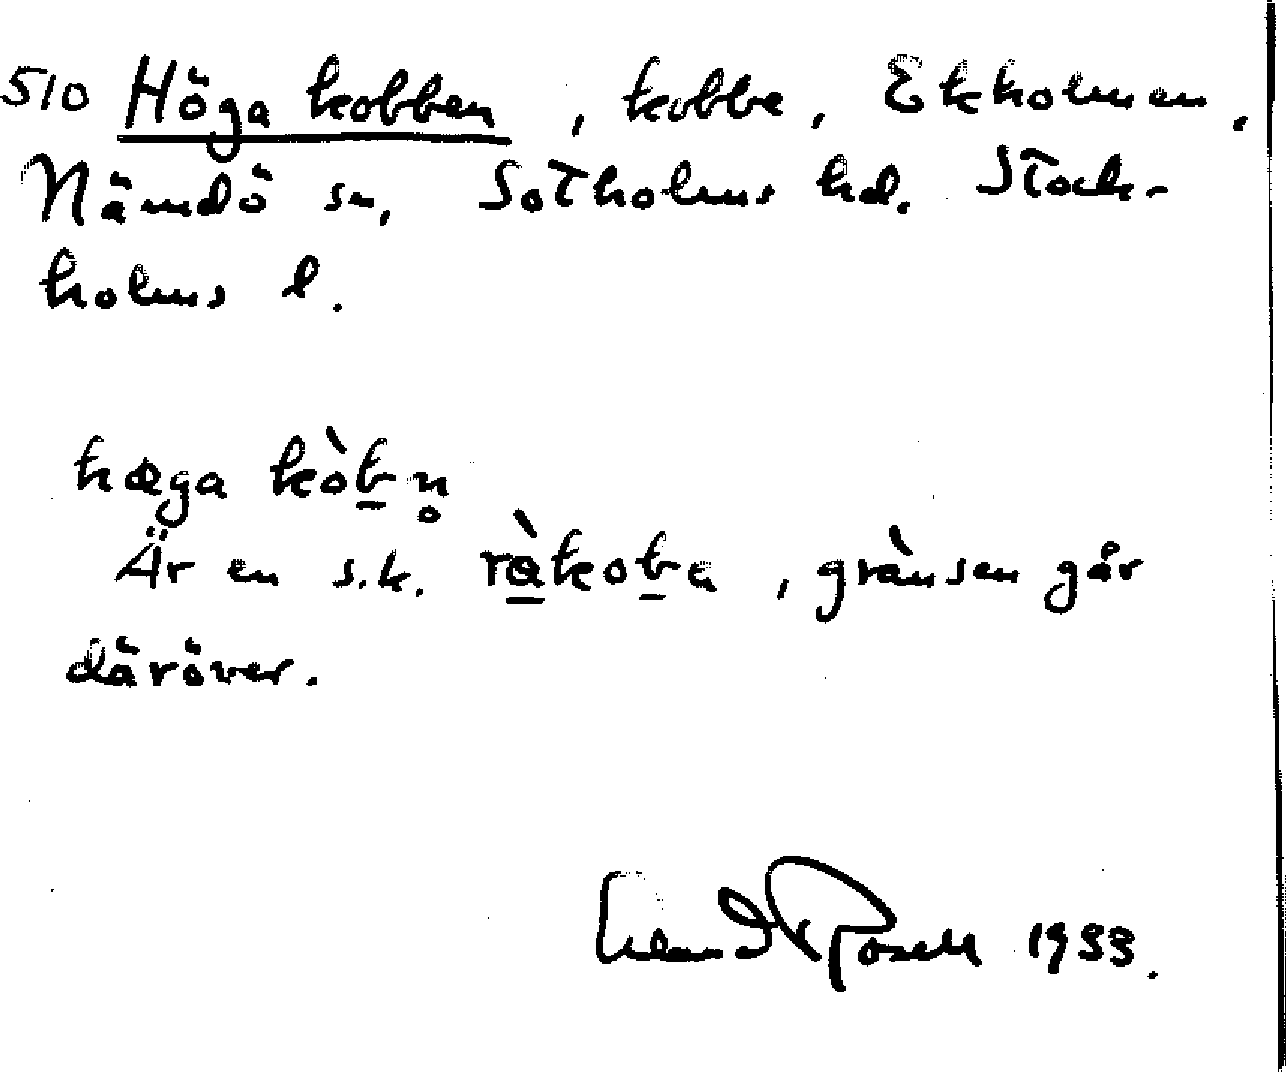 510 Höga kobben, kobbe, Ekholmen.
Nämdö sn, Sotholms hd. Stock-
holms l.
hœga kòb̲n̥
Är en s.k. rɑ̲̀koba, gränsen går
däröver.
Erland Rosell 1933.